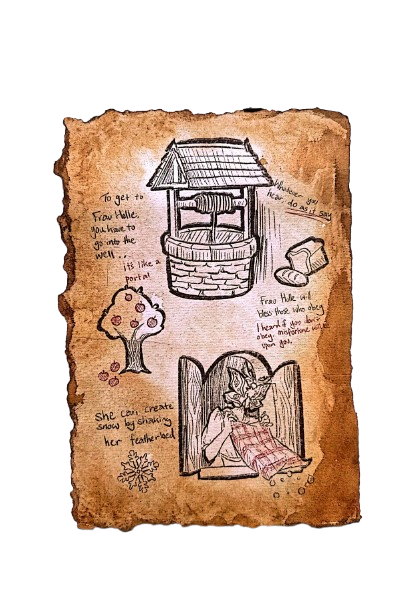 To get to
Frau Holle,
you have to
go into the
well...
it's like a
portal
Whatever you
hear do as I say
Frau Holle will
bless those who obey
I heard if you don't
obey, misfortune will
upon you.
She can create
snow by shaking
her featherbed